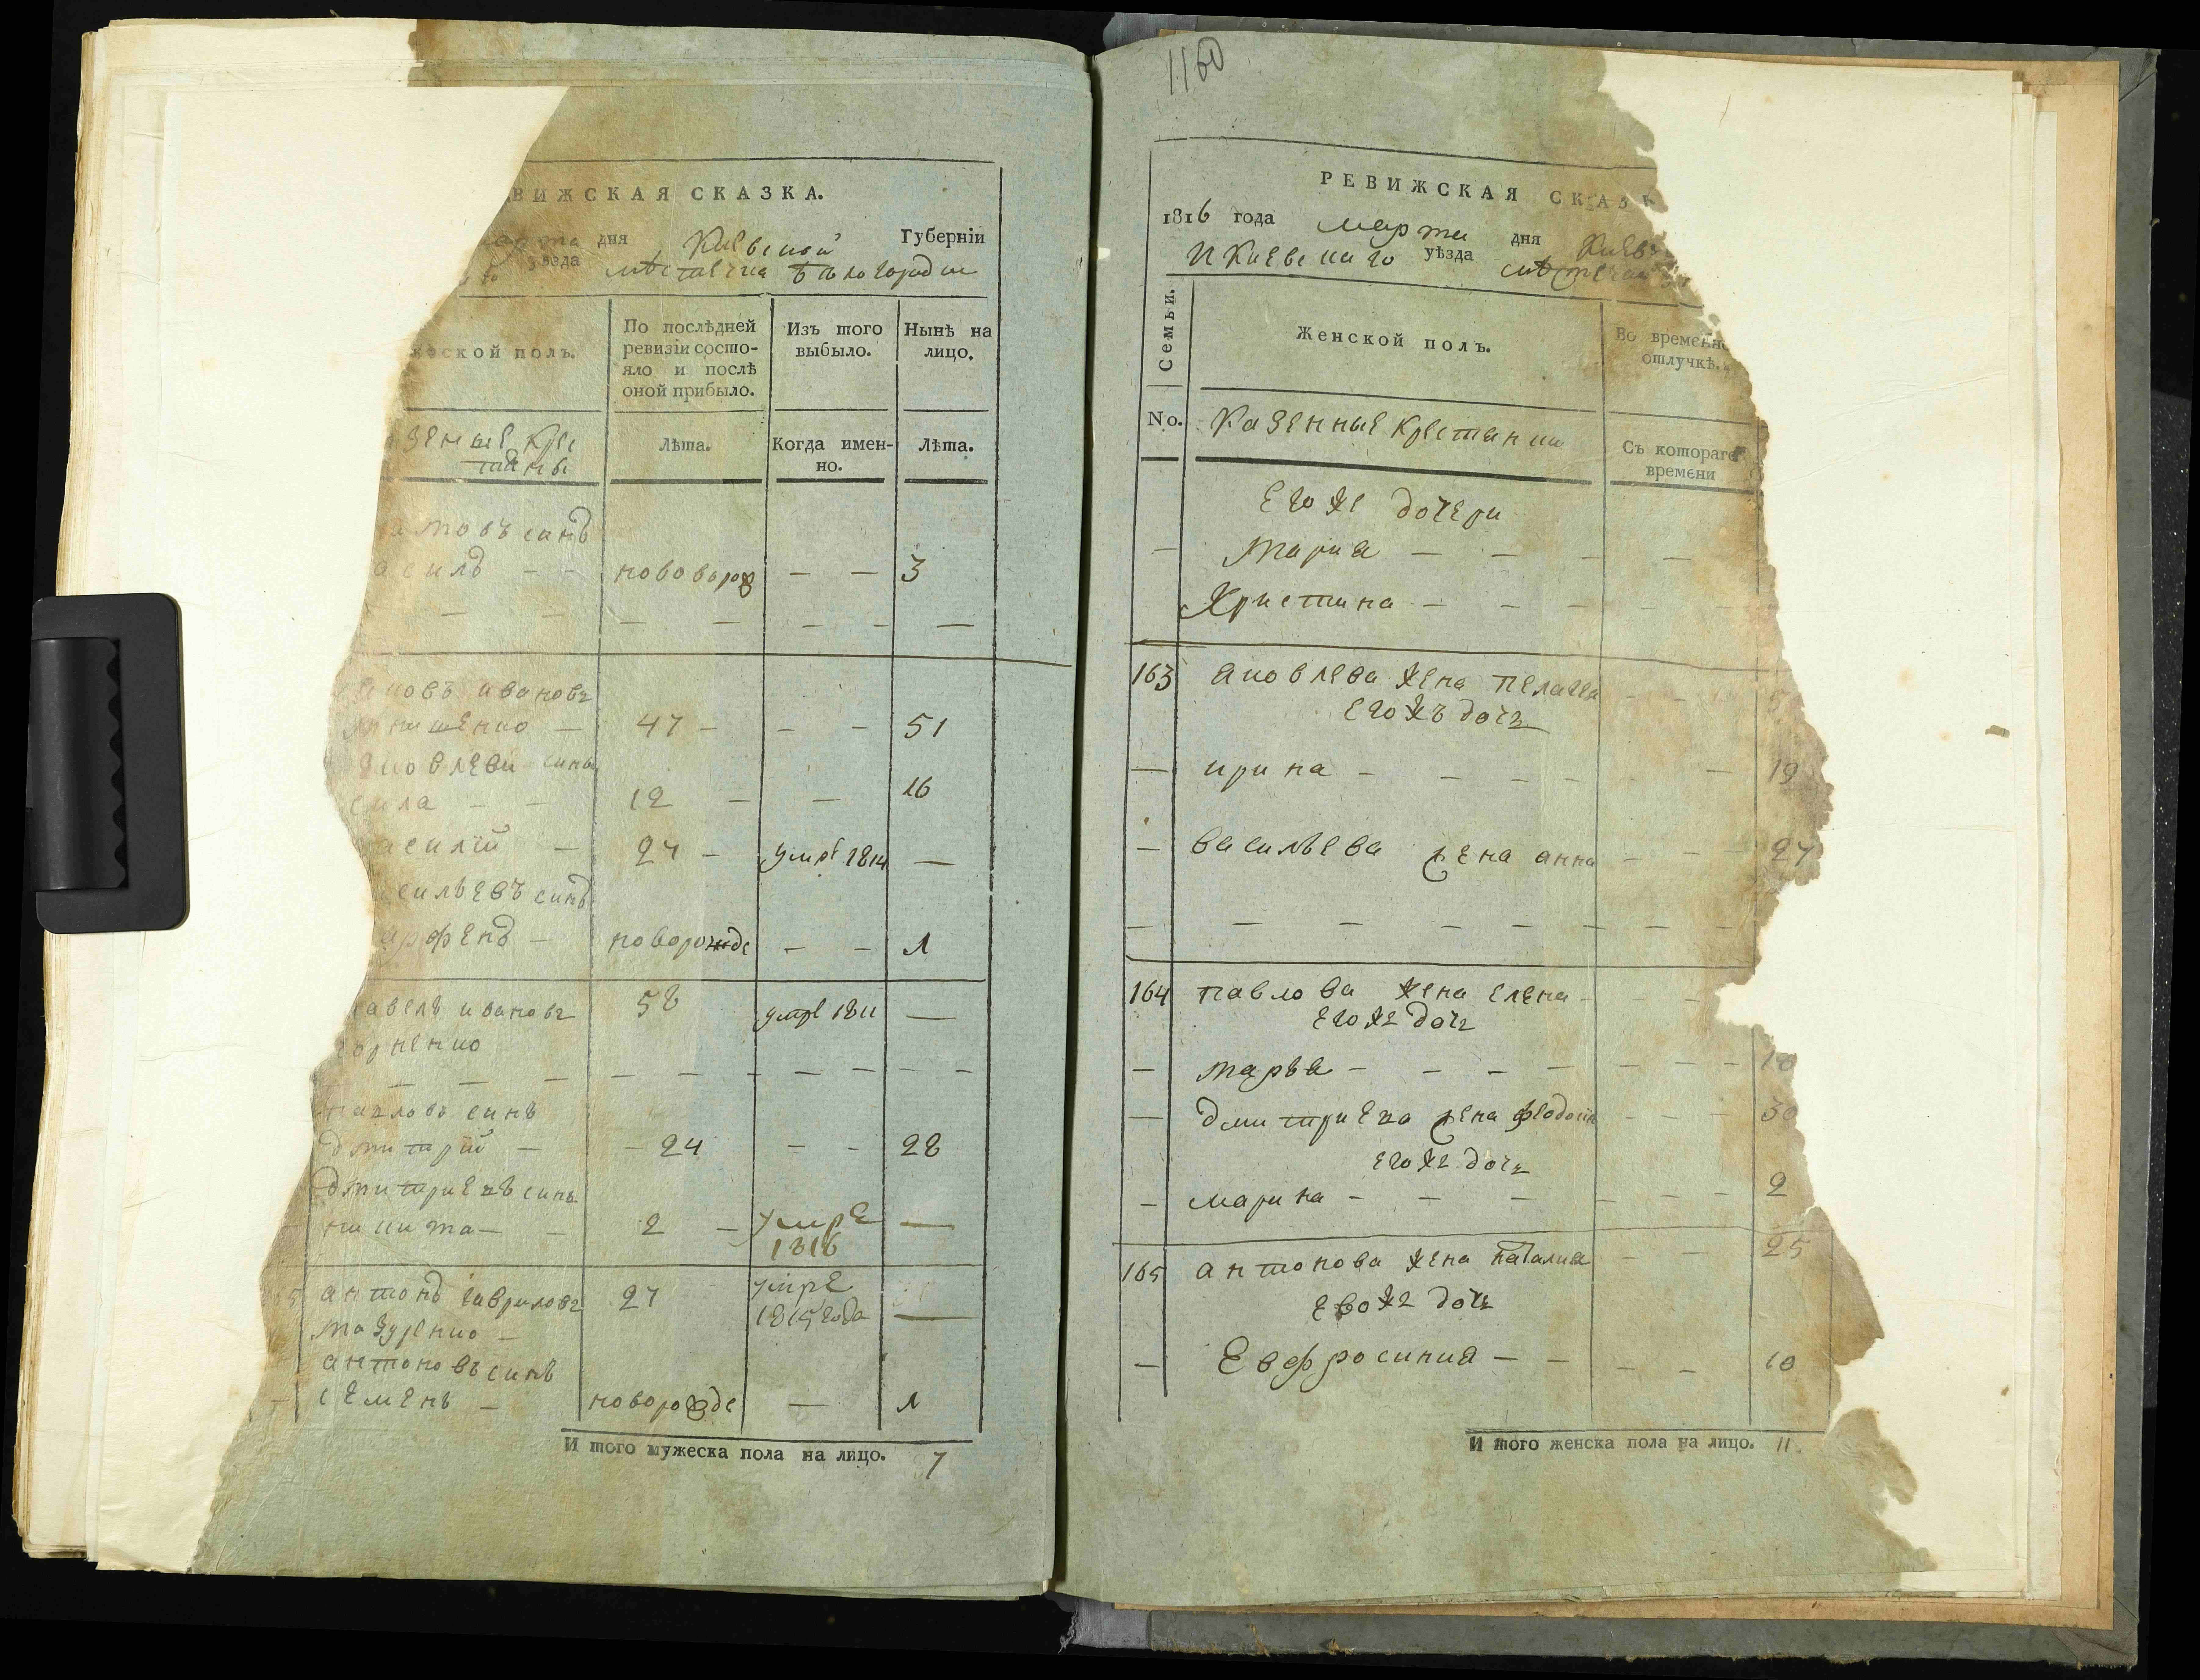 ВИЖСКАЯ СКАЗКА.
марта дня Киевской Губерніи
уѣзда мѣстечка Бѣлогородки
ской полъ.
По послѣдней ревизіи состо-
яло и послѣ
оной прибыло.
Изъ того
выбыло.
Нынѣ на
лицо.
зенные крес
тяне
Лѣта.
Когда имен-
но.
Лѣта.
товъ синъ
асилъ — — новоро — — 3
— — — — — — —
ковъ ивановъ
енко — 47 — — — 51
яковлеви сины
сила — — 12 — — 16
асилій — 24 — умре 1814 —
асильевъ синъ
арфенъ — новорожде — — 1
павелъ ивановъ 58 умре 1811 —
горненко
— — — — — — — — — —
павловъ синъ
дмитрій — — 24 — — 28
дмитриевъ синъ
никита — — 2 — умре —
1816
165 антонъ гавриловъ 27 умре
мазуренко — 1815 года —
антоновъ синъ
семенъ — новорожде — 1
И того мужеска пола на лицо. 7
1160
РЕВИЖСКАЯ СКАЗК
1816 года марта дня Киевс
И Киевскаго уѣзда мѣстечка
Семьи.
Женской полъ.
Во временно
отлучкѣ.
No. Казенные крестянки
Съ котораго
времени
его же дочери
— мария — — — —
Христина — — — —
163 яковлева жена пелагея — — 5
его жъ дочъ
— ирина — — — — — — 19
— васильева жена анна — — 27
— — — — — — — — —
164 павлова жена елена — — —
его же дочъ
— марья — — — — — — — 10
— дмитриева жена феодосия — — — 30
его же дочъ
— марина — — — — — — 2
165 антонова жена наталия — — 25
его же дочъ
— Евфросиния — — — — 10
И того женска пола на лицо. 11.